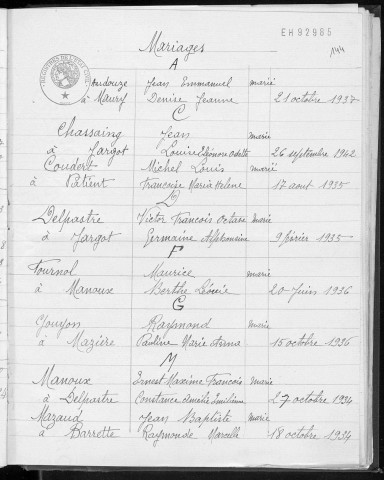 EH 92965
Mariages
144
A
Jean Emmanuel marié
à Maury Denise Jeanne 21 octobre 1937
C
Chassaing Jean marié
à Jargot Louise Eléonore Odette 26 septembre 1942
Coudert Michel Louis marié
à Patient Françoise Maria Helene 17 aout 1935
D
Delpastre Victor Francois Octave marié
à Jargot Germaine Alphonsine 9 février 1935
F
Tournol Maurice marié
à Manoux Berthe Léonie 20 Juin 1936
G
Gouyon Raymond marié
à Mazière Pauline Marie 15 octobre 1936
M
Manoux Ernest Maxime Francois marié
à Delpastre Constance Amélie Emilienne 27 octobre 1934
Mazaud Jean Baptiste marié
à Barrette Raymonde Marcelle 18 octobre 1934